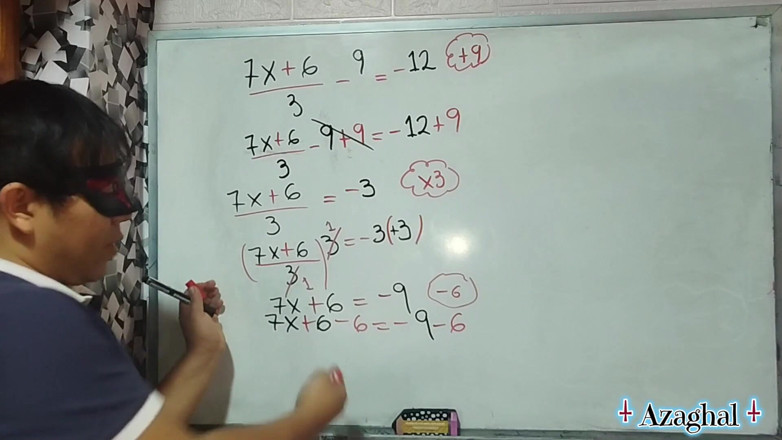 7x+6/3 - 9 = -12 +9
7x+6/3 - 9+9 = -12+9
7x+6/3 = -3 x3
(7x+6/3)3 1 1 = -3(+3)
7x+6 = -9 -6
7x+6-6 = -9-6
Azaghal